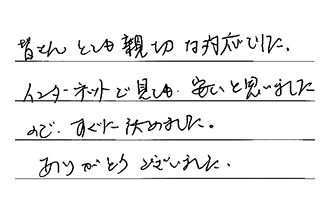 皆さんとても親切な対応でした。
インターネットで見ても、安いと思いました
ので、すぐに決めました。
ありがとうございました。